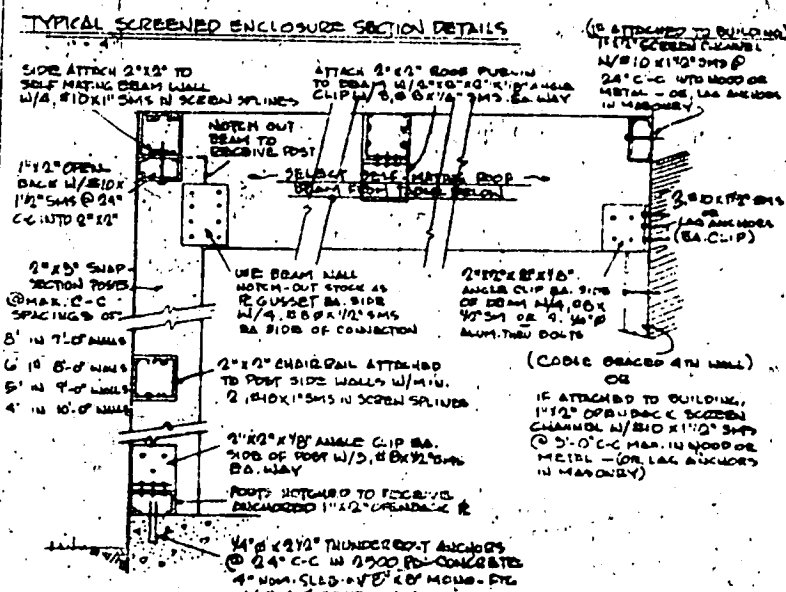 TYPICAL SCREENED ENCLOSURE SECTION DETAILS
(IF ATTACHED TO BUILDING)
1"x2" SCREEN CHANNEL
W/#10 x 1½" SMS @
24" C-C INTO WOOD OR
METAL - OR, LAG ANCHORS
IN MASONRY)
SIDE ATTACH 2"x2" TO
SELF MATING BEAM WALL
W/4, #10x1" SMS IN SCREEN SPLINES
ATTACH 2"x2" ROOF PURLIN
TO BEAM W/ 2"x2"x2"x⅛" ANGLE
CLIP W/ 8, #8x½" SMS. EA. WAY
NOTCH OUT
BEAM TO
RECEIVE POST
1"x2" OPEN
BACK W/#10x
1½" SMS @ 24"
C-C INTO 2"x2"
SELECT SELF-MATING ROOF
BEAM FROM TABLE BELOW
3, #10x1½" SMS
OR
LAG ANCHORS
(EA. CLIP)
2"x3" SNAP
SECTION POSTS
@ MAX. C-C
SPACINGS OF:
8' IN 7'-0" WALLS
6' IN 8'-0" WALLS
5' IN 9'-0" WALLS
4' IN 10'-0" WALLS
USE BEAM WALL
NOTCH-OUT STOCK AS
GUSSET EA. SIDE
W/4, #8 x ½" SMS
EA SIDE OF CONNECTION
ANGLE CLIP EA. SIDE
OF BEAM W/4, #8x
½" SM OR 2, ¼"ø
ALUM. THRU BOLTS
2"x2" CHAIR RAIL ATTACHED
TO POST SIDE WALLS W/MIN.
2, #10x1" SMS IN SCREEN SPLINES
(CABLE BRACED 4TH WALL)
OR
IF ATTACHED TO BUILDING,
1"x2" OPENBACK SCREEN
CHANNEL W/#10 x 1½" SMS
@ 3'-0" C-C MAX. IN WOOD OR
METAL - (OR LAG ANCHORS
IN MASONRY)
2"x2"x⅛" ANGLE CLIP EA.
SIDE OF POST W/3, #8x½" SMS
EA. WAY
POSTS NOTCHED TO RECEIVE
ANCHORED 1"x2" OPENBACK
¼"ø x 2½" THUNDERBOLT ANCHORS
@ 24" C-C IN 2500 PSI CONCRETE
4" NOM. SLAB W/ 8" x 8" MONO-FTG